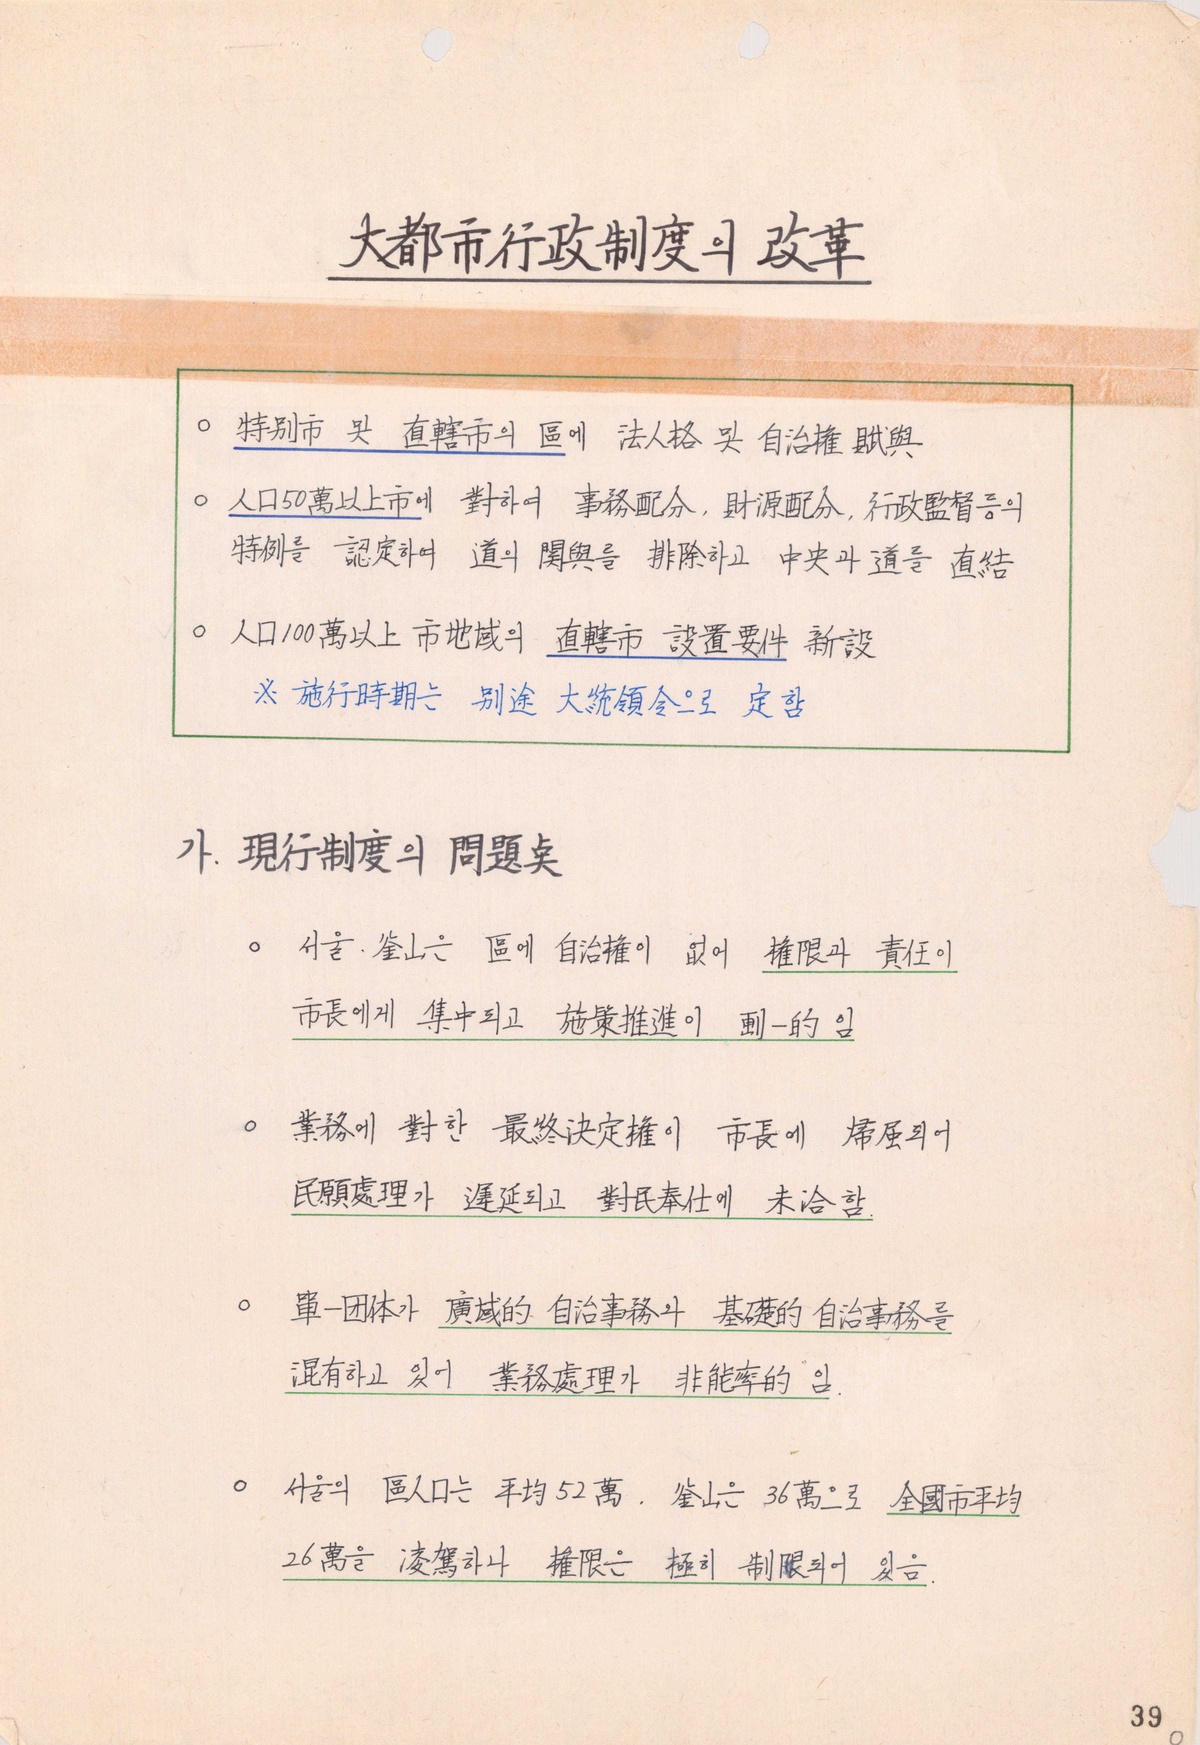 大都市行政制度의 改革
○ 特別市 및 直轄市의 區에 法人格 및 自治權 賦與
○ 人口50萬以上市에 對하여 事務配分, 財源配分, 行政監督등의
特例를 認定하여 道의 関與를 排除하고 中央과 道를 直結
○ 人口100萬以上 市地域의 直轄市 設置要件 新設
※ 施行時期는 別途 大統領令으로 定함
가. 現行制度의 問題点
○ 서울·釜山은 區에 自治權이 없어 權限과 責任이
市長에게 集中되고 施策推進이 劃一的 임
○ 業務에 對한 最終決定權이 市長에 帰属되어
民願處理가 遲延되고 對民奉仕에 未洽함.
○ 單一団体가 廣域的 自治事務와 基礎的 自治事務를
混有하고 있어 業務處理가 非能率的 임.
○ 서울의 區人口는 平均52萬. 釜山은 36萬으로 全國市平均
26萬을 凌駕하나 權限은 極히 制限되어 있음.
39